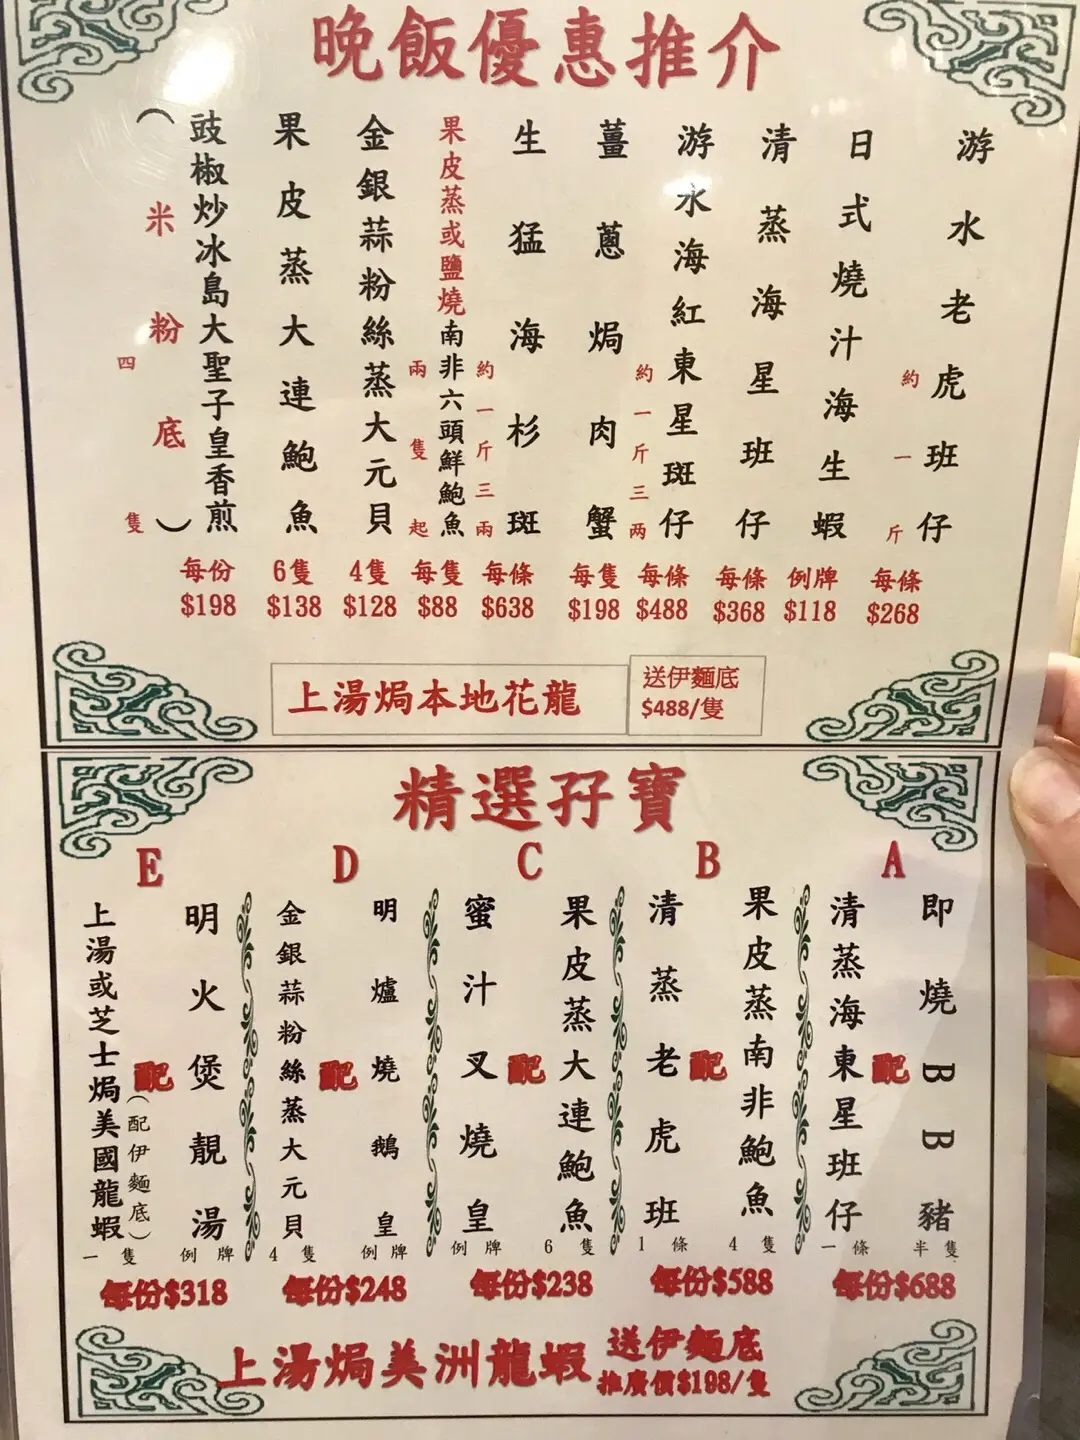 晚飯優惠推介
游水老虎班仔
約一斤
每條
$268
日式燒汁海生蝦
例牌
$118
清蒸海星班仔
每條
$368
游水海紅東星斑仔
約一斤三两
每條
$488
薑蔥焗肉蟹
每隻
$198
生猛海杉斑
約一斤三兩
每條
$638
果皮蒸或鹽燒南非六頭鮮鮑魚
兩隻起
每隻
$88
金銀蒜粉絲蒸大元貝
4隻
$128
果皮蒸大連鮑魚
6隻
$138
豉椒炒冰島大聖子皇香煎
(米粉底)
四隻
每份
$198
上湯焗本地花龍
送伊麵底
$488/隻
精選孖寶
A
即燒BB豬
半隻
配
清蒸海東星班仔
一條
每份$688
B
果皮蒸南非鮑魚
4隻
配
清蒸老虎班
1條
每份$588
C
果皮蒸大連鮑魚
6隻
配
蜜汁叉燒皇
例牌
每份$238
D
明爐燒鵝皇
例牌
配
金銀蒜粉絲蒸大元貝
4隻
每份$248
E
明火煲靚湯
例牌
配
上湯或芝士焗美國龍蝦
(配伊麵底)
一隻
每份$318
上湯焗美洲龍蝦
送伊麵底
推廣價$198/隻